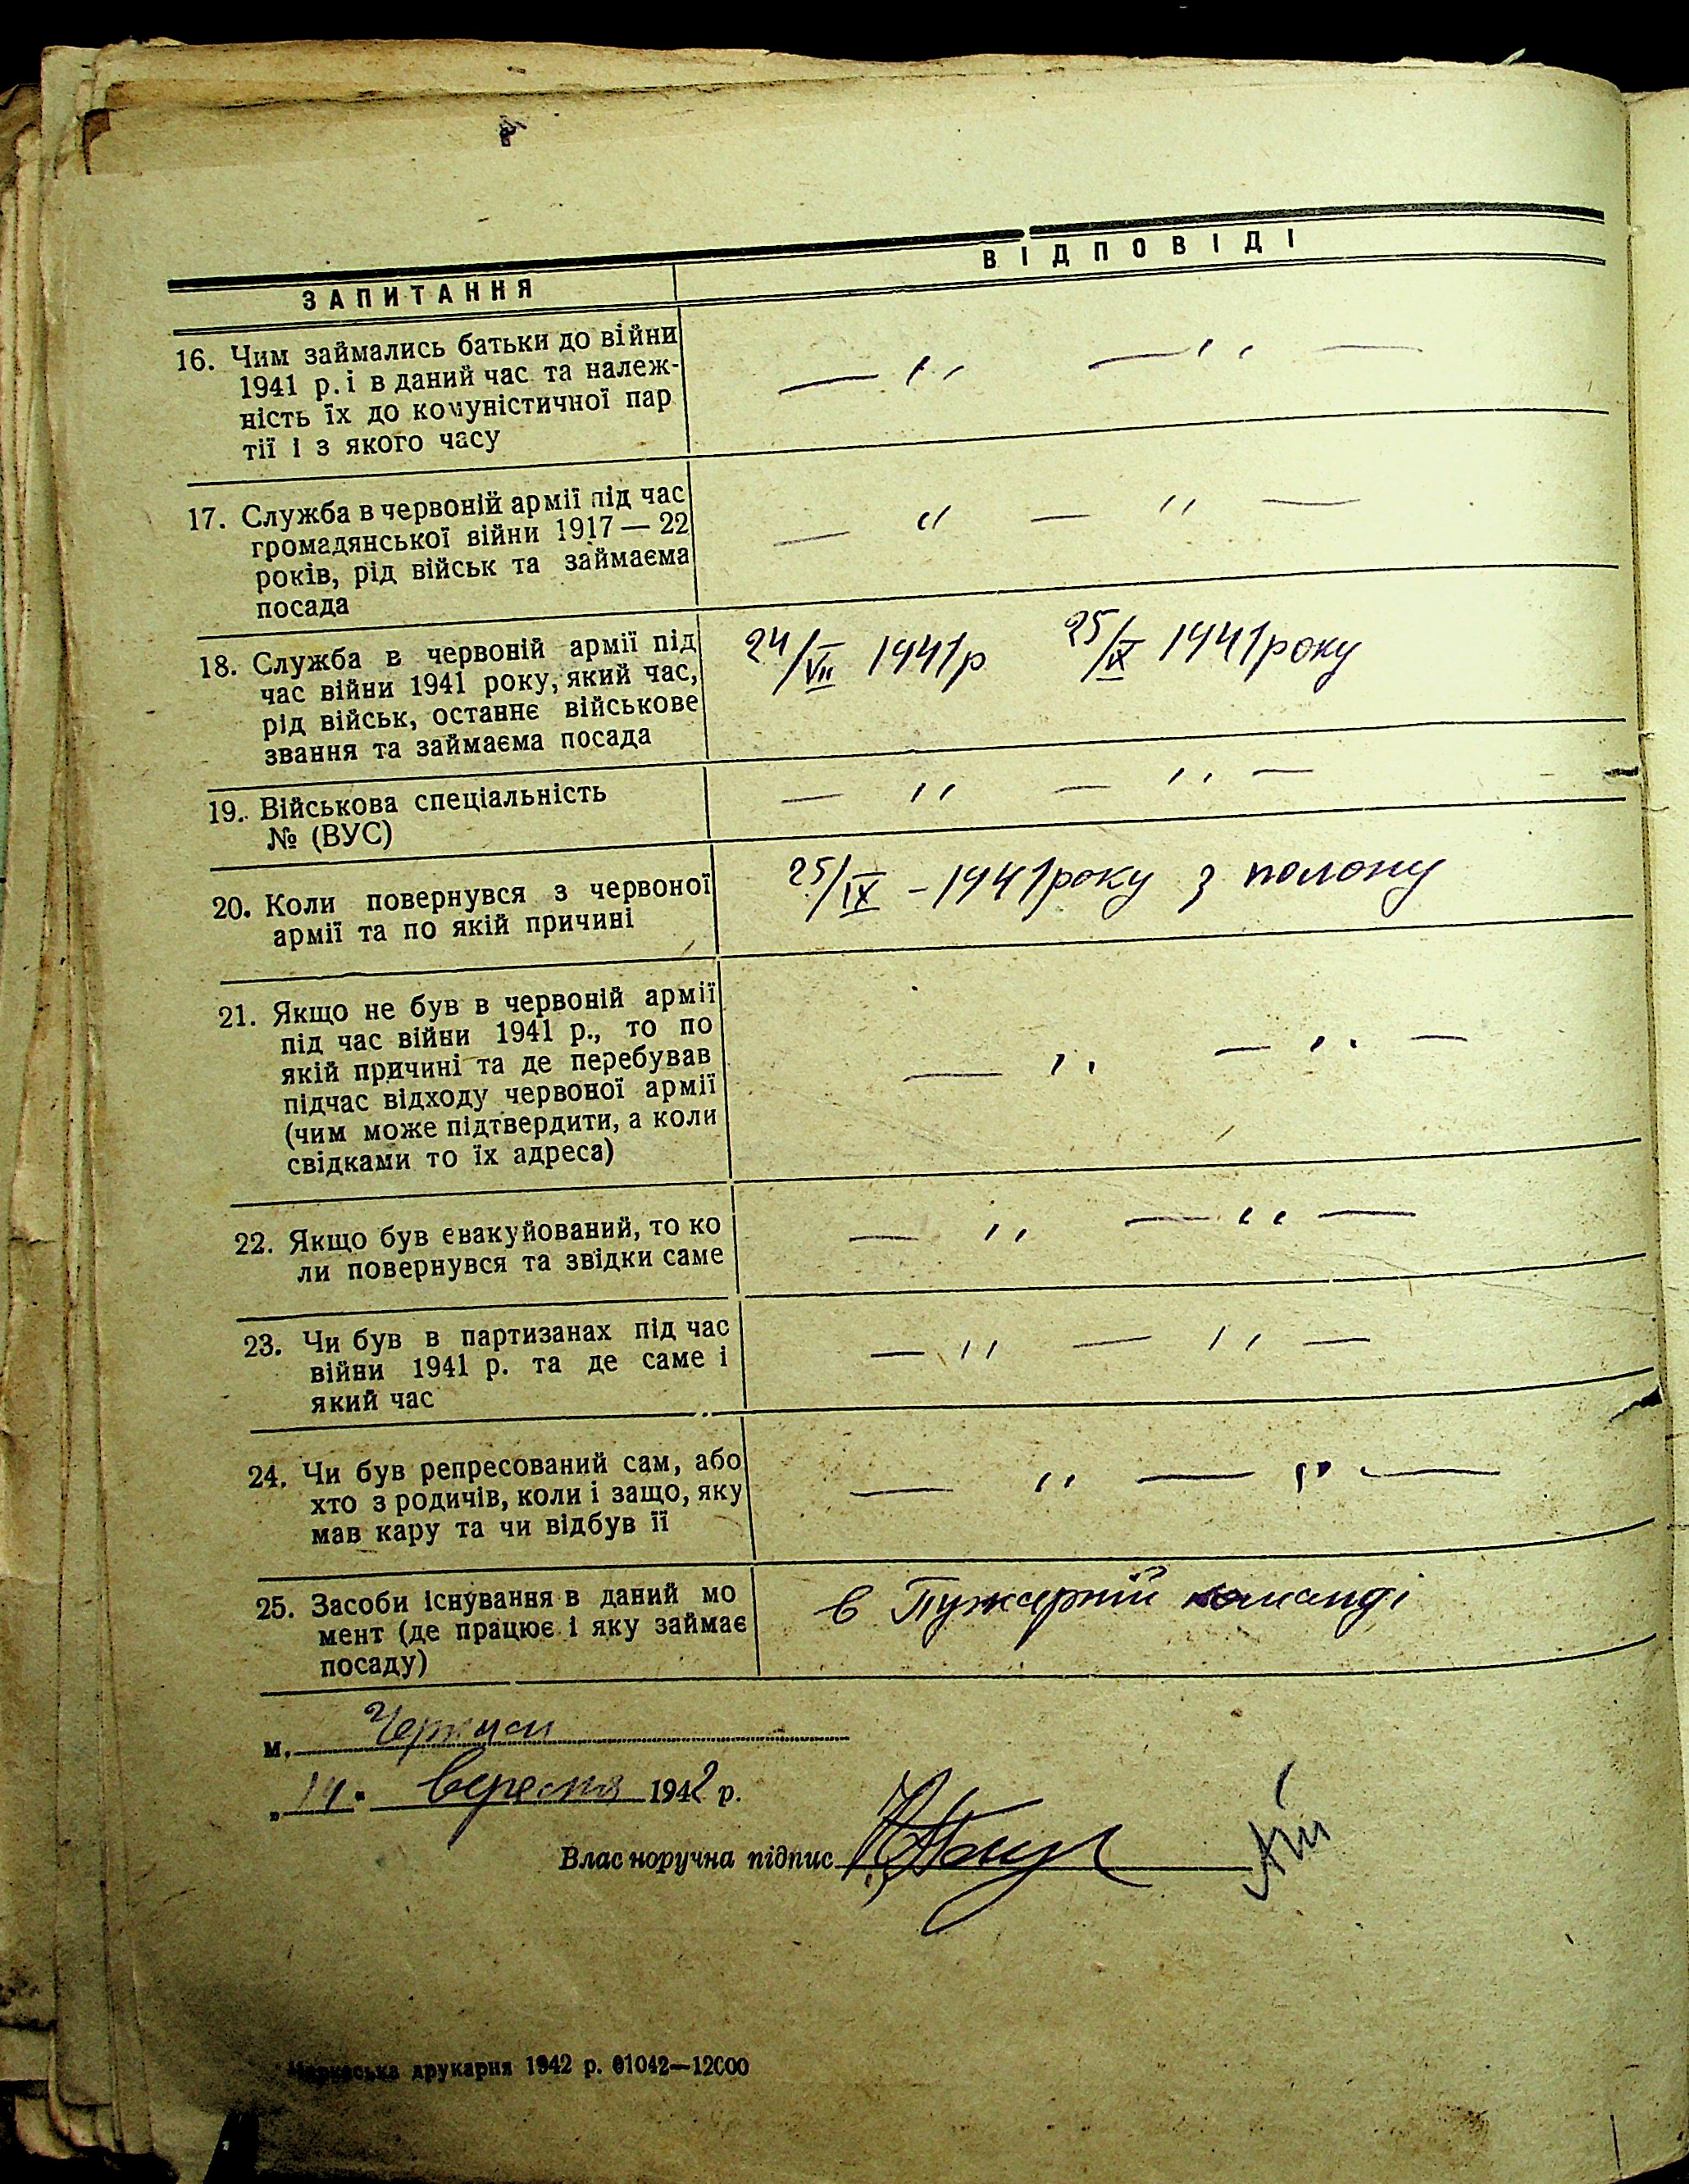 ЗАПИТАННЯ
ВІДПОВІДІ
16. Чим займались батьки до війни
1941 р. і в даний час та належ-
ність їх до комуністичної пар
тії і з якого часу
— ,, — ,, —
17. Служба в червоній армії під час
громадянської війни 1917 — 22
років, рід військ та займаєма
посада
— ,, — ,, —
18. Служба в червоній армії під
час війни 1941 року, який час,
рід військ, останнє військове
звання та займаєма посада
24/VII 1941р 25/IX 1941року
19. Військова спеціальність
№ (ВУС)
— ,, — ,, —
20. Коли повернувся з червоної
армії та по якій причині
25/IX - 1941року з полону
21. Якщо не був в червоній армії
під час війни 1941 р., то по
якій причині та де перебував
підчас відходу червоної армії
(чим може підтвердити, а коли
свідками то їх адреса)
— ,, — ,, —
22. Якщо був евакуйований, то ко
ли повернувся та звідки саме
— ,, — ,, —
23. Чи був в партизанах під час
війни 1941 р. та де саме і
який час
— ,, — ,, —
24. Чи був репресований сам, або
хто з родичів, коли і защо, яку
мав кару та чи відбув її
— ,, — ,, —
25. Засоби існування в даний мо
мент (де працює і яку займає
посаду)
в Пужарній команді
м. Черкаси
„14" вересня 1942 р.
Власноручна підпис
Черкаська друкарня 1942 р. 01042—12000